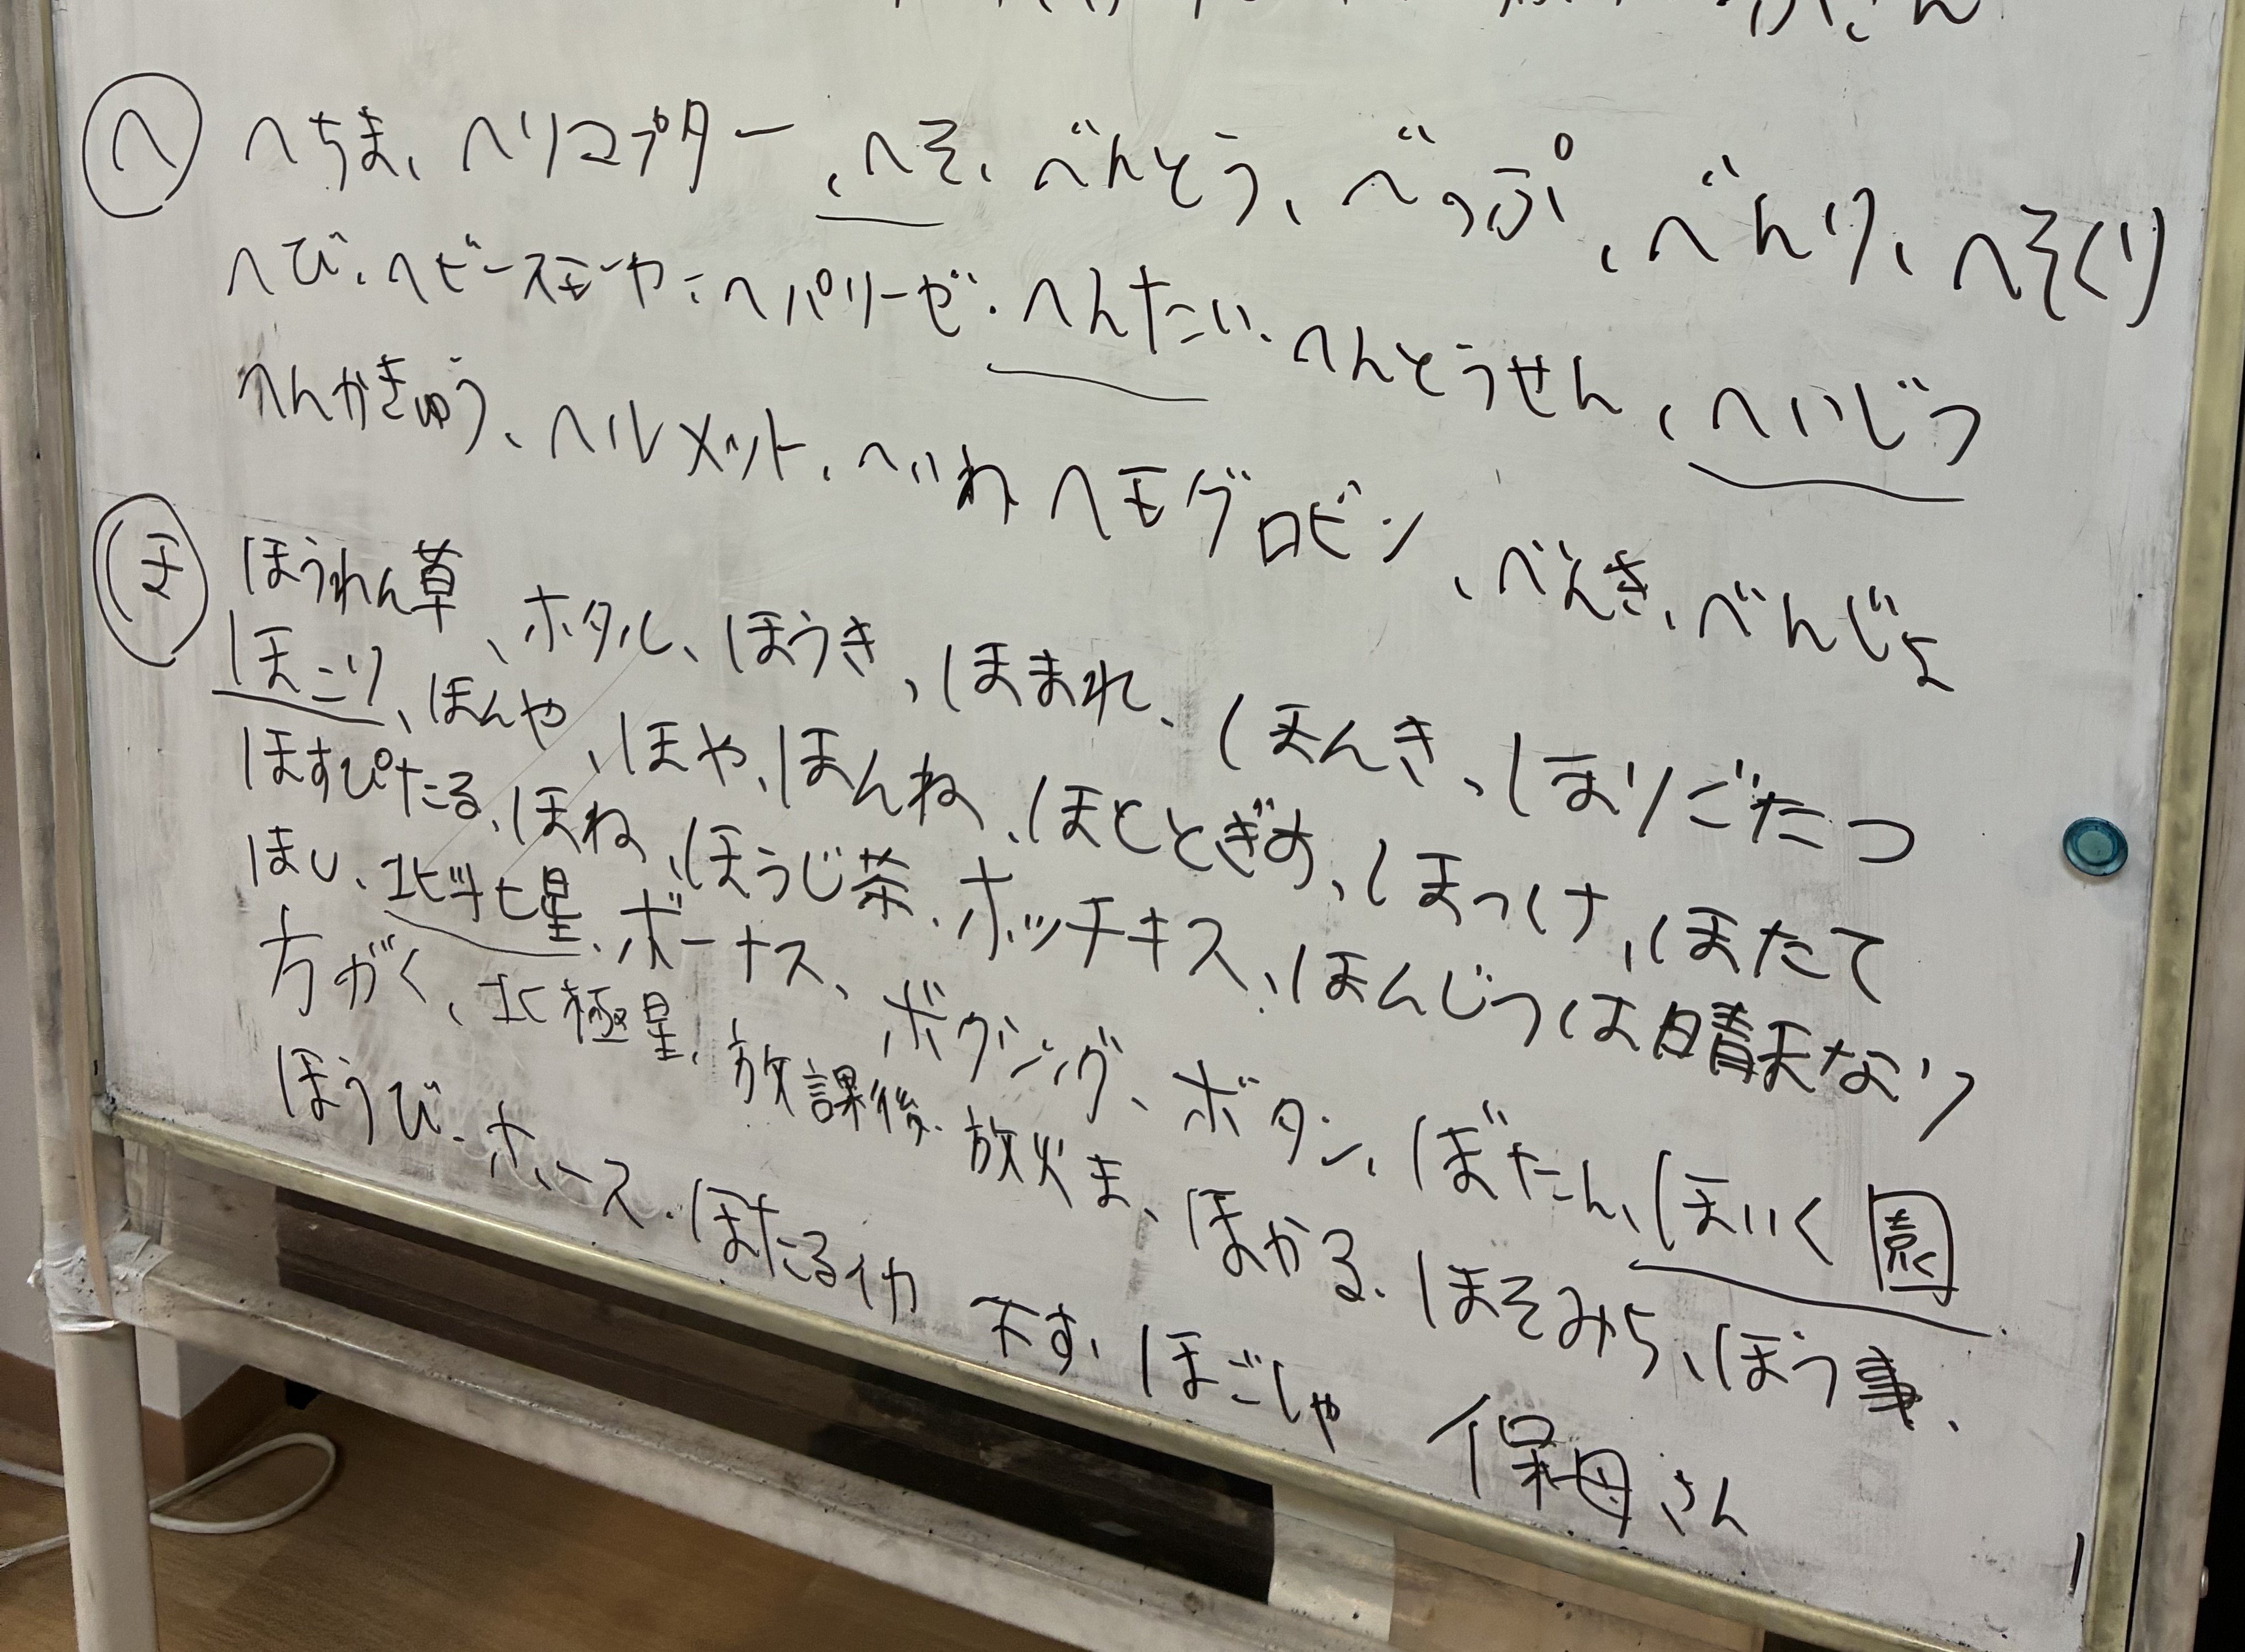 へ へちま、ヘリコプター、へそ、べんとう、べっぷ、べんり、へそくり
へび、ヘビースモーカー、ヘパリーゼ、へんたい、へんとうせん、へいじつ
へんかきゅう、ヘルメット、へいわ ヘモグロビン、べんき、べんじょ
ほ ほうれん草、ホタル、ほうき、ほまれ、ほんき、ほりごたつ
ほこり、ほんや、ほや、ほんね、ほととぎす、ほっけ、ほたて
ほすぴたる、ほね、ほうじ茶、ホッチキス、ほんじつは晴天なり
ほし、北斗七星、ボーナス、ボクシング、ボタン、ぼたん、ほいく園
方がく、北極星、放課後、放火ま、ほかる、ほそみち、ほう事、
ほうび、ホース、ほたるイカ 干す、ほごしゃ 保母さん